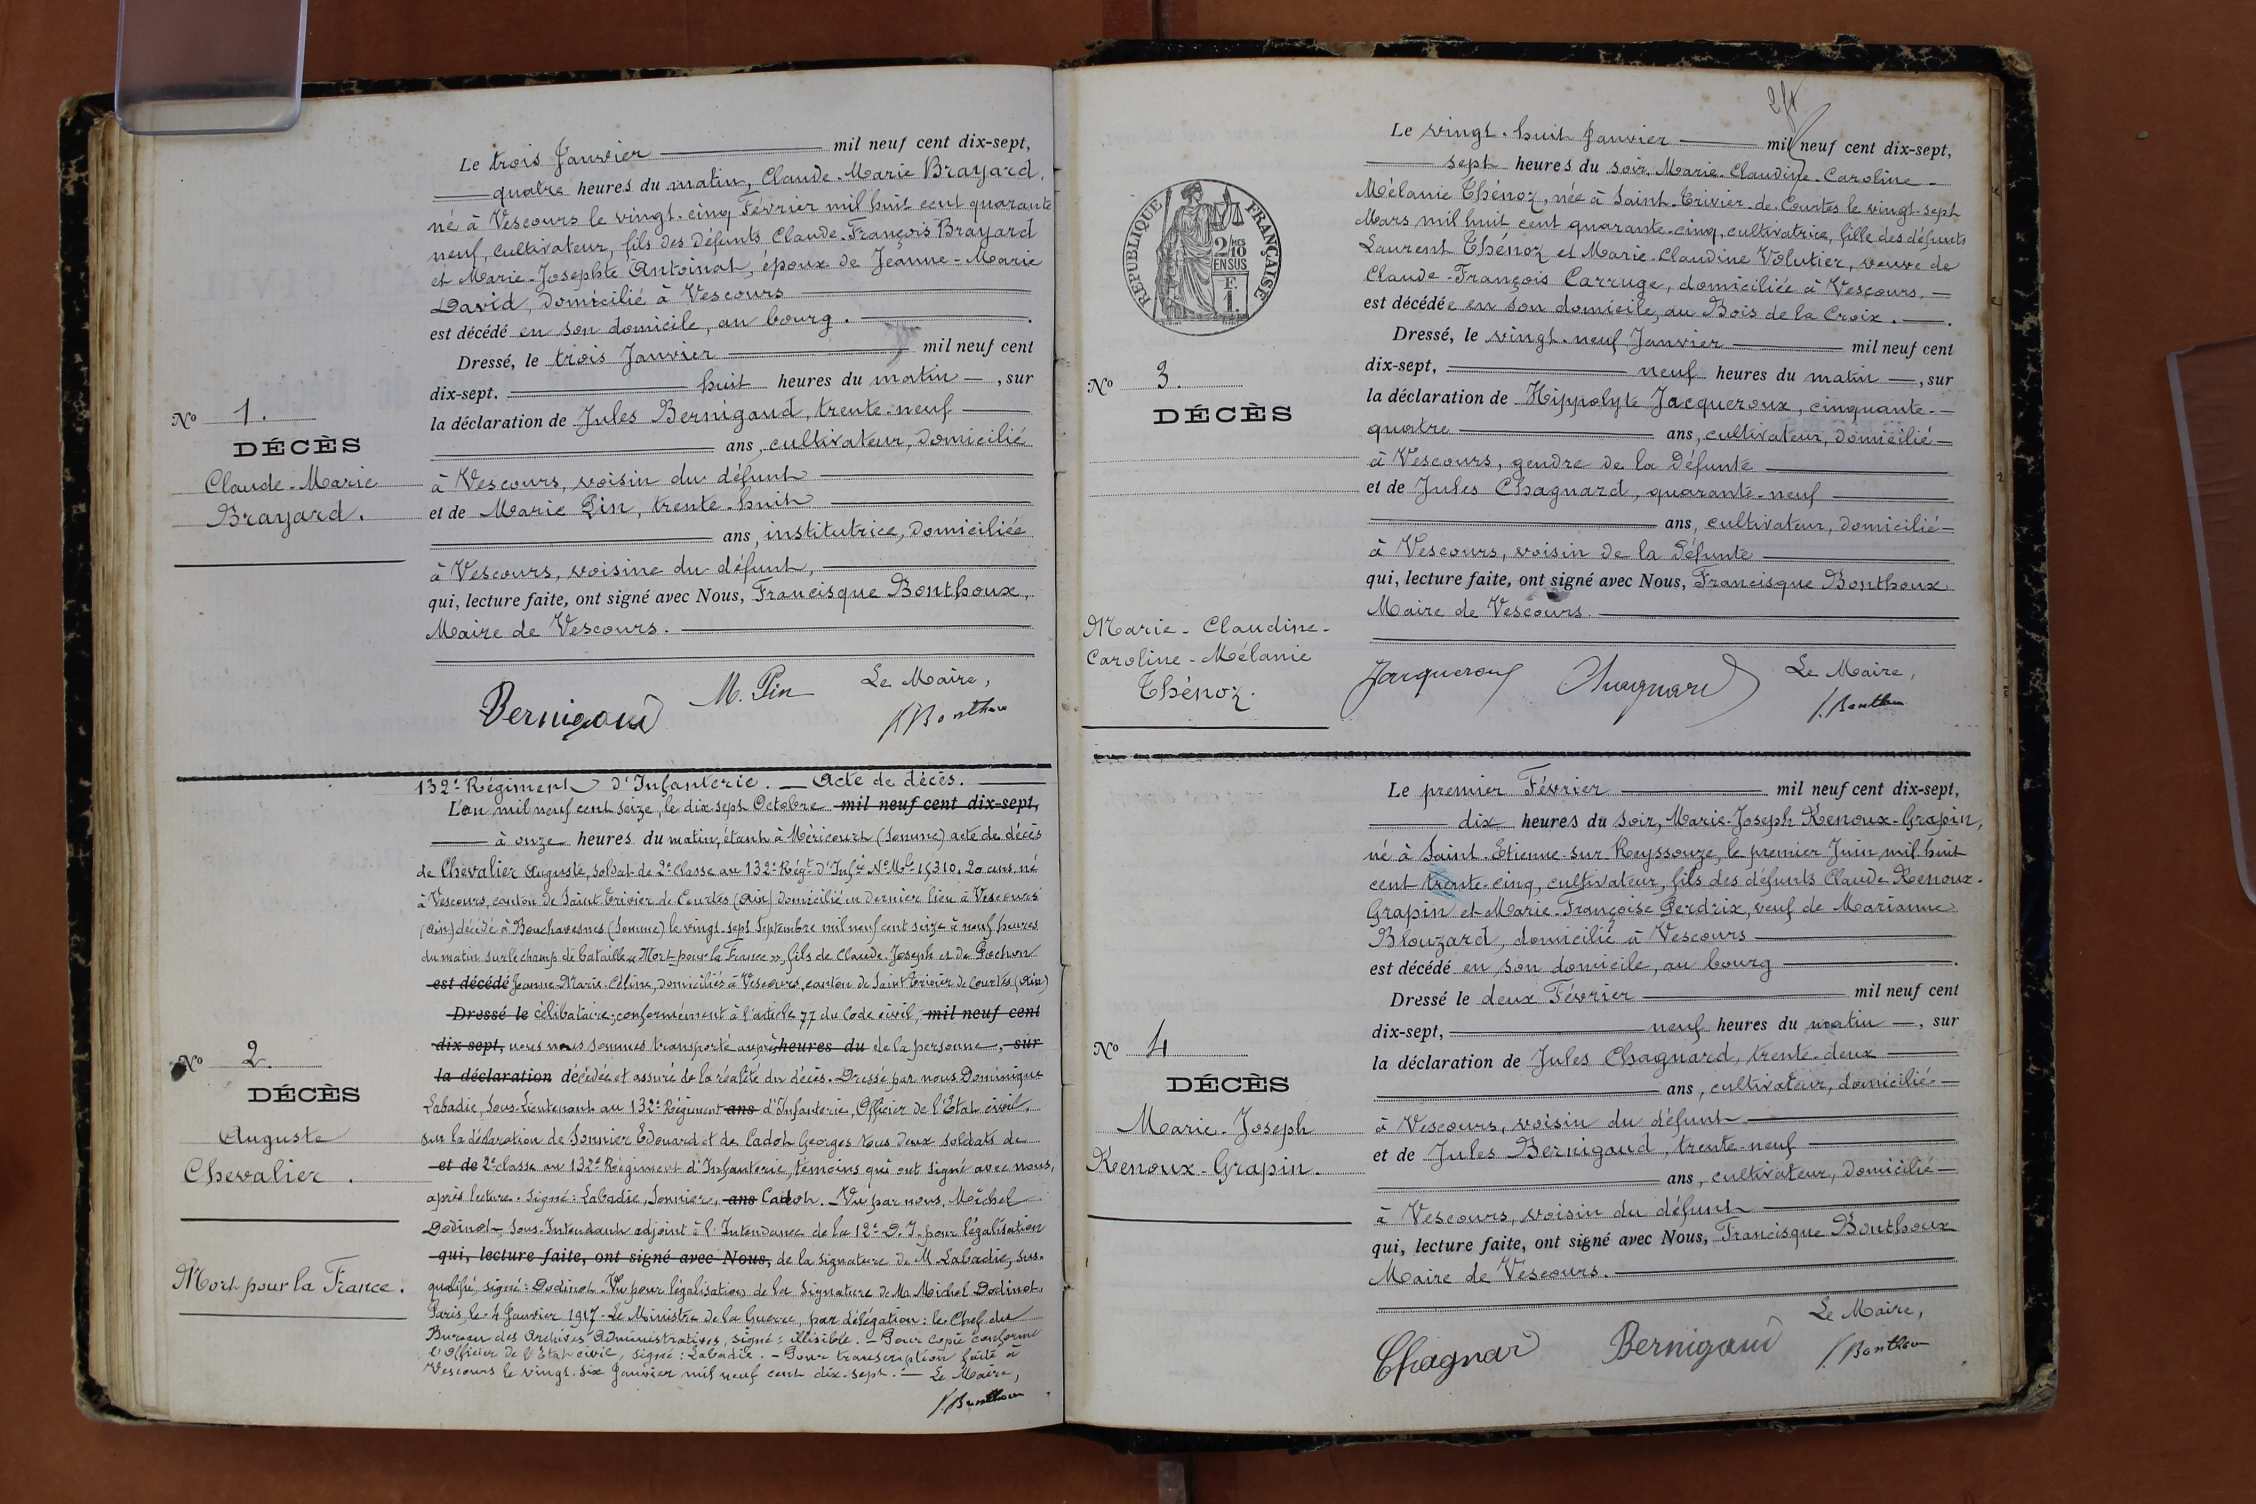 Le trois Janvier mil neuf cent dix-sept,
quatre heures du matin, Claude-Marie Brayard,
né à Vescours le vingt-cinq Février mil huit cent quarante
neuf, cultivateur, fils des défunts Claude-François Brayard
et Marie-Josephte Antoinat, époux de Jeanne-Marie
David, domicilié à Vescours
est décédé en son domicile, au bourg.
Dressé, le trois Janvier mil neuf cent
dix-sept. huit heures du matin, sur
la déclaration de Jules Bernigaud, trente-neuf
ans, cultivateur, domicilié
à Vescours, voisin du défunt
et de Marie Pin, trente-huit
ans, institutrice, domiciliée
à Vescours, voisine du défunt,
qui, lecture faite, ont signé avec Nous, Francisque Bonthoux,
Maire de Vescours.
No 1.
DÉCÈS
Claude-Marie
Brayard.
Bernigaud M. Pin Le Maire,
F. Bonthoux
132e Régiment d'Infanterie. — Acte de décès.
L'an mil neuf cent seize, le dix sept Octobre mil neuf cent dix-sept,
à onze heures du matin, étant à Méricourt (Somme) acte de décès
de Chevalier Auguste, soldat de 2e classe au 132e Régt d'Infie No Mle 15310, 20 ans, né
à Vescours, canton de Saint Trivier de Courtes (Ain) domicilié en dernier lieu à Vescours
(Ain) décédé à Bouchavesnes (Somme) le vingt-sept Septembre mil neuf cent seize à neuf heures
du matin sur le champ de bataille « Mort pour la France », fils de Claude-Joseph et de Pochon
est décédé Jeanne-Marie-Céline, domiciliés à Vescours, canton de Saint Trivier de Courtes (Ain)
Dressé le célibataire, conformément à l'article 77 du Code civil, mil neuf cent
dix sept, nous nous sommes transporté auprès heures du de la personne, sur
la déclaration décédée et assuré de la réalité du décès. Dressé par nous Dominique
Labadie, Sous-Lieutenant au 132e Régiment ans d'Infanterie, Officier de l'Etat civil,
sur la déclaration de Sonnier Edouard et de Cadot Georges tous deux soldats de
et de 2e classe au 132e Régiment d'Infanterie, témoins qui ont signé avec nous,
après lecture. Signé: Labadie, Sonnier, ans Cadot. — Vu par nous, Michel
Dodinot, Sous-Intendant adjoint à l'Intendance de la 12e D.I. pour légalisation
qui, lecture faite, ont signé avec Nous, de la signature de M Labadie, sus-
qualifié, signé: Dodinot. Vu pour légalisation de la signature de M. Michel Dodinot.
Paris, le 4 Janvier 1917. Le Ministre de la Guerre, par délégation: le Chef du
Bureau des Archives Administratives, signé: illisible. — Pour copie conforme
l'Officier de l'Etat civil, signé: Labadie. — Pour transcription faite à
Vescours le vingt-six Janvier mil neuf cent dix-sept. — Le Maire,
F. Bonthoux
No 2.
DÉCÈS
Auguste
Chevalier.
Mort pour la France.
Le vingt-huit Janvier mil neuf cent dix-sept,
sept heures du soir, Marie-Claudine-Caroline-
Mélanie Thénoz, née à Saint-Trivier-de-Courtes le vingt-sept
Mars mil huit cent quarante-cinq, cultivatrice, fille des défunts
Laurent Thénoz et Marie-Claudine Volutier, veuve de
Claude-François Carruge, domiciliée à Vescours,
est décédée en son domicile, au Bois de la Croix.
Dressé, le vingt-neuf Janvier mil neuf cent
dix-sept, neuf heures du matin, sur
la déclaration de Hippolyte Jacqueroux, cinquante-
quatre ans, cultivateur, domicilié
à Vescours, gendre de la défunte
et de Jules Chagnard, quarante-neuf
ans, cultivateur, domicilié
à Vescours, voisin de la défunte
qui, lecture faite, ont signé avec Nous, Francisque Bonthoux
Maire de Vescours.
RÉPUBLIQUE FRANÇAISE
2/10 EN SUS
F.
1.
No 3.
DÉCÈS
Marie-Claudine-
Caroline-Mélanie
Thénoz.
Jacqueroux Chagnard Le Maire,
F. Bonthoux
Le premier Février mil neuf cent dix-sept,
dix heures du soir, Marie-Joseph Renoux-Grapin,
né à Saint-Etienne-sur Reyssouze, le premier Juin mil huit
cent trente-cinq, cultivateur, fils des défunts Claude Renoux-
Grapin et Marie-Françoise Perdrix, veuf de Marianne
Blouzard, domicilié à Vescours
est décédé en son domicile, au bourg
Dressé le deux Février mil neuf cent
dix-sept, neuf heures du matin, sur
la déclaration de Jules Chagnard, trente-deux
ans, cultivateur, domicilié
à Vescours, voisin du défunt
et de Jules Bernigaud, trente-neuf
ans, cultivateur, domicilié
à Vescours, voisin du défunt
qui, lecture faite, ont signé avec Nous, Francisque Bonthoux
Maire de Vescours.
No 4
DÉCÈS
Marie-Joseph
Renoux-Grapin.
Chagnard Bernigaud Le Maire,
F. Bonthoux